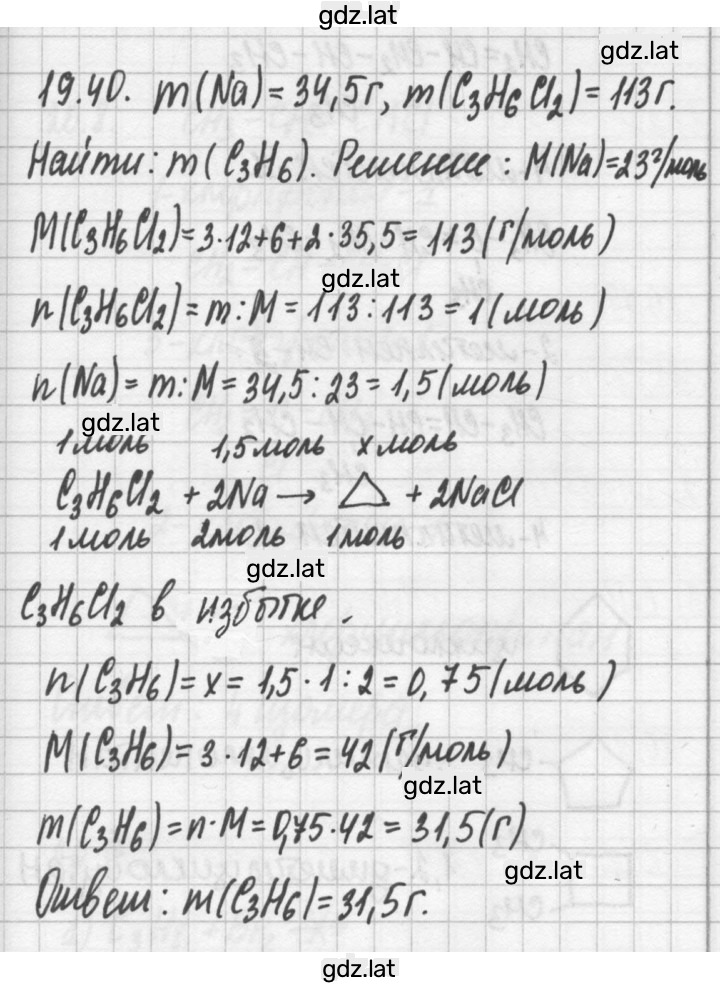 gdz.lat
gdz.lat
19.40. m(Na)=34,5г, m(C₃H₆Cl₂)=113г.
Найти: m(C₃H₆). Решение: M(Na)=23г/моль
M(C₃H₆Cl₂)=3·12+6+2·35,5=113(г/моль)
gdz.lat
n(C₃H₆Cl₂)=m:M=113:113=1(моль)
n(Na)=m:M=34,5:23=1,5(моль)
gdz.lat
1моль 1,5моль x моль
C₃H₆Cl₂ + 2Na → △ + 2NaCl
1моль 2моль 1моль
gdz.lat
C₃H₆Cl₂ в избытке.
n(C₃H₆)=x=1,5·1:2=0,75(моль)
M(C₃H₆)=3·12+6=42(г/моль)
gdz.lat
m(C₃H₆)=n·M=0,75·42=31,5(г)
gdz.lat
Ответ: m(C₃H₆)=31,5г.
gdz.lat